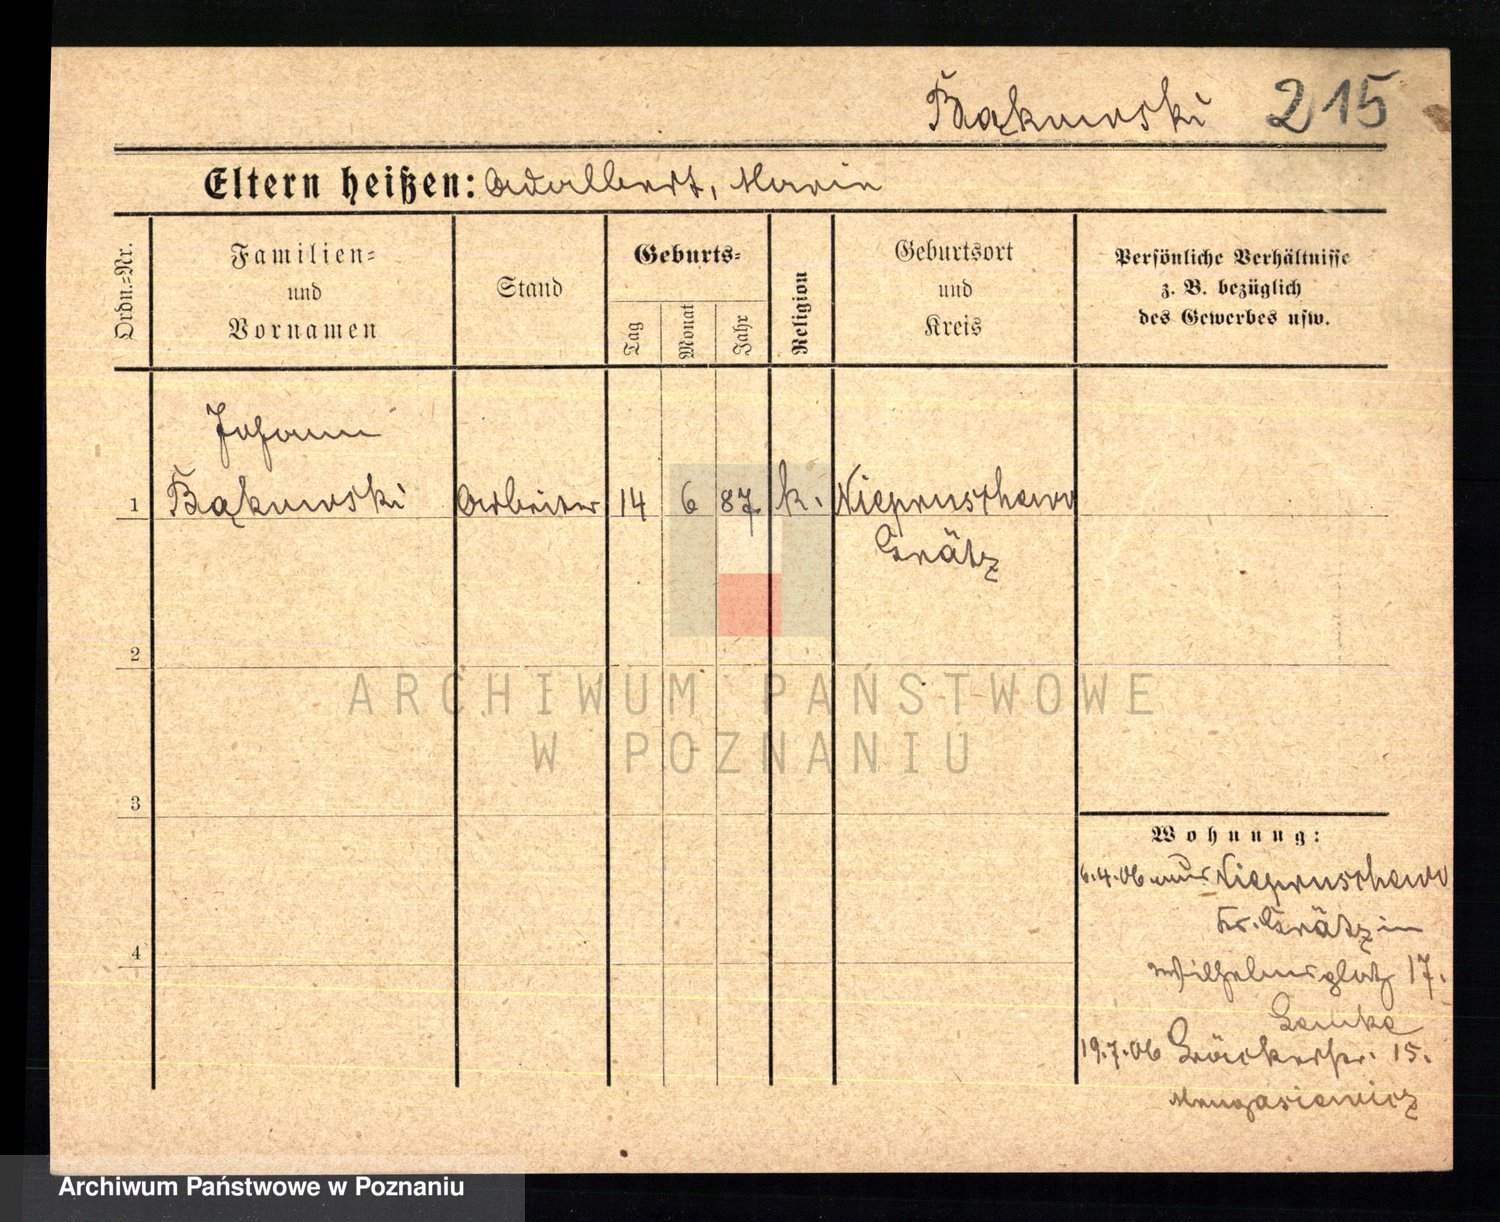 Bąkowski 215
Eltern heißen: Adalbert, Marie
Ordn.=Nr.
Familien=
und
Vornamen
Stand
Geburts=
Tag
Monat
Jahr
Religion
Geburtsort
und
Kreis
Persönliche Verhältnisse
z. B. bezüglich
des Gewerbes usw.
Johann
1 Bąkowski Arbeiter 14 6 87 k. Niepruschewo
Grätz
2
3
4
Wohnung:
6.4.06 aus Niepruschewo
Kr. Grätz in
Wilhelmsplatz 17.
19.7.06 15.
ARCHIWUM PAŃSTWOWE
W POZNANIU
Archiwum Państwowe w Poznaniu